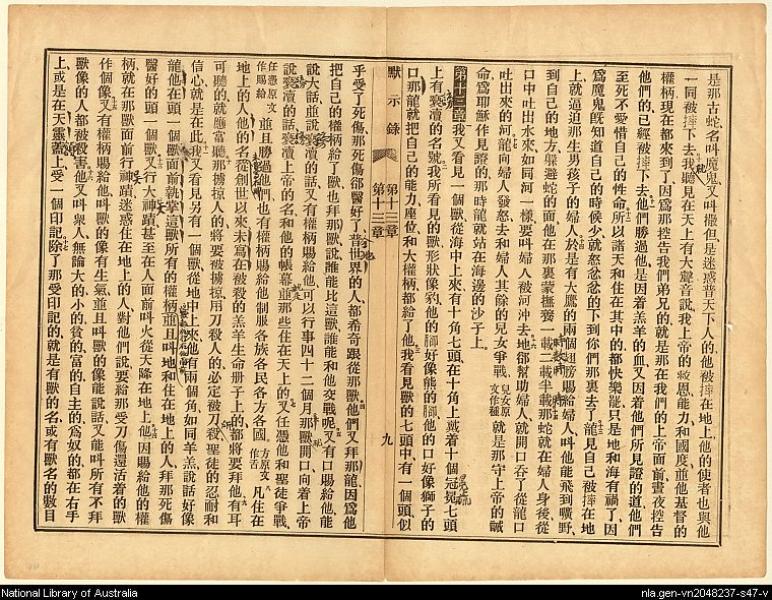 是那古蛇名叫魔鬼又叫撒但是迷惑普天下人的他被摔在地上他的使者也與他
一同被摔下去我聽見在天上有大聲音說我上帝的救恩能力和國度並他基督的
權柄現在都來到了因為那控告我們弟兄的就是那在我們的上帝面前晝夜控告
他們的已經被摔下去他們勝過他是因着羔羊的血又因着他們所見證的道他們
至死不愛惜自己的性命所以諸天和住在其中的都快樂罷只是地和海有禍了因
為魔鬼旣知道自己的時候少就怒忿忿的下到你們那裏去了龍見自己被摔在地
上就逼迫那生男孩子的婦人於是有大鷹的兩個翅膀賜給婦人叫他能飛到曠野
到自己的地方躲避蛇的面他在那裏蒙撫養一載二載半載那蛇就在婦人身後從
口中吐出水來如同河一樣要叫婦人被河沖去地卻幫助婦人就開口吞了從龍口
吐出來的河龍向婦人發怒去和婦人其餘的兒女爭戰 兒女原文作種 就是那守上帝的誡
命為耶穌作見證的那時龍就站在海邊的沙子上
第十三章 我又看見一個獸從海中上來有十角七頭在十角上戴着十個冠冕七頭
上有褻瀆的名號我所見的獸形狀像豹他的腳好像熊的腳他的口好像獅子的
口那龍就把自己的能力座位和大權柄都給了他我看見獸的七頭中有一個頭似
默示錄 第十二章 第十三章 九
乎受了死傷那死傷卻醫好了普世界的人都希奇跟從那獸他們又拜那龍因為他
把自己的權柄給了獸也拜那獸說誰能比這獸誰能和他交戰呢又有口賜給他能
說大話並說褻瀆的話又有權柄賜給他可以行事四十二個月那獸開口向着上帝
說褻瀆的話褻瀆上帝的名和他的帳幕並那些住在天上的又任憑他和聖徒爭戰
任憑原文作賜給 並且勝過他們也有權柄賜給他制服各族各民各方各國 方原文作舌 凡住在
地上的人他的名從創世以來未寫在被殺的羔羊生命册子上的都將要拜他有耳
可聽的就應當聽那擄掠人的將要被擄掠用刀殺人的必定被刀殺聖徒的忍耐和
信心就是在此我又看見另有一個獸從地上來他有兩個角如同羊羔說話好像
龍他在頭一個獸面前就掌這獸所有的權柄並且叫地和住在地上的人拜那死傷
醫好的頭一個獸又行大神蹟甚至在人面前叫火從天降在地上他因賜給他的權
柄就在那獸面前行神蹟迷惑住在地上的人對他們說要給那受刀傷還活着的獸
作個像又有權柄賜給他叫獸的像有生氣並且叫獸的像能說話又能叫所有不拜
獸像的人都被殺害他又叫衆人無論大的小的貧的富的自主的為奴的都在右手
上或是在天靈蓋上受一個印記除了那受印記的就是有獸的名或有獸名的數目
National Library of Australia
nla.gen-vn2048237-s47-v